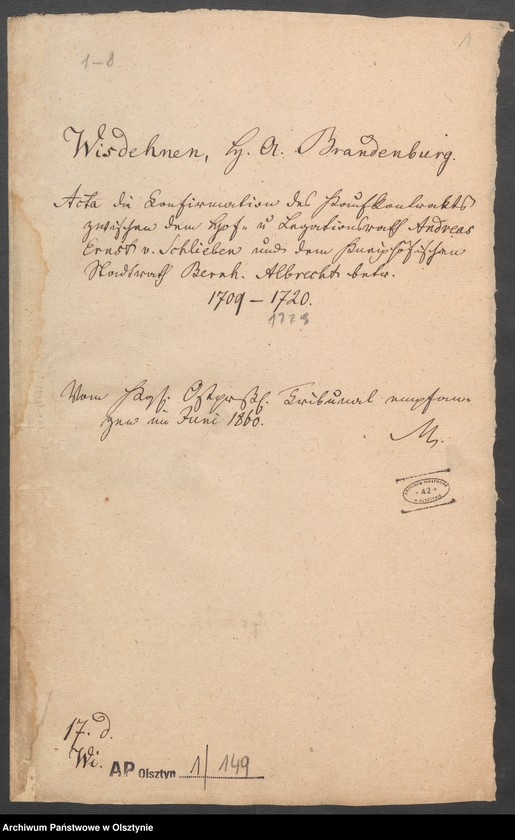 1–8
1
Wisdehnen, H. A. Brandenburg.
Acta die Confirmation des Kaufkontrakts
zwischen dem Hof- u Legationsrath Andreas
Ernst v. Schlieben und dem Kneiphöfischen
Stadtrath Bernh. Albrecht betr.
1709 – 1720.
1729
Vom Kgl. Ostpr. Tribunal empfan-
gen im Juni 1860.
M.
42
OLSZTYNIE
17. d.
Wi.
AP Olsztyn 1/149
Archiwum Państwowe w Olsztynie